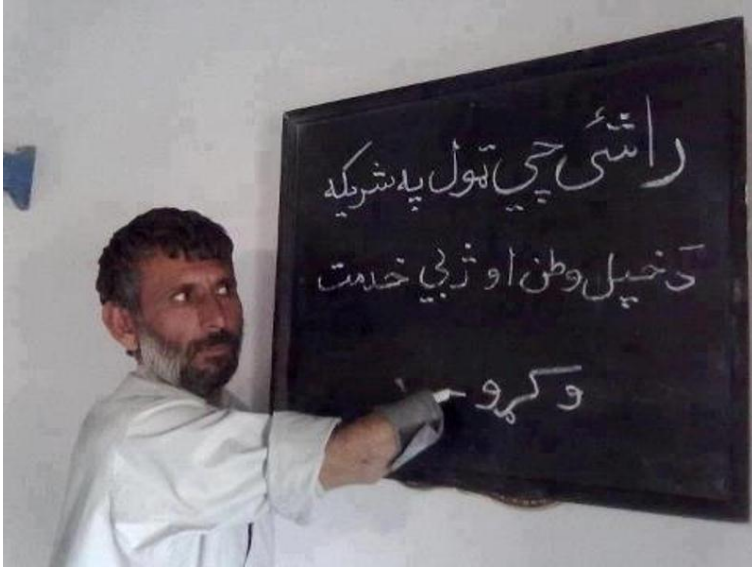 راشئ چي ټول په شريکه
د خپل وطن او ژبي خدمت
وکړو